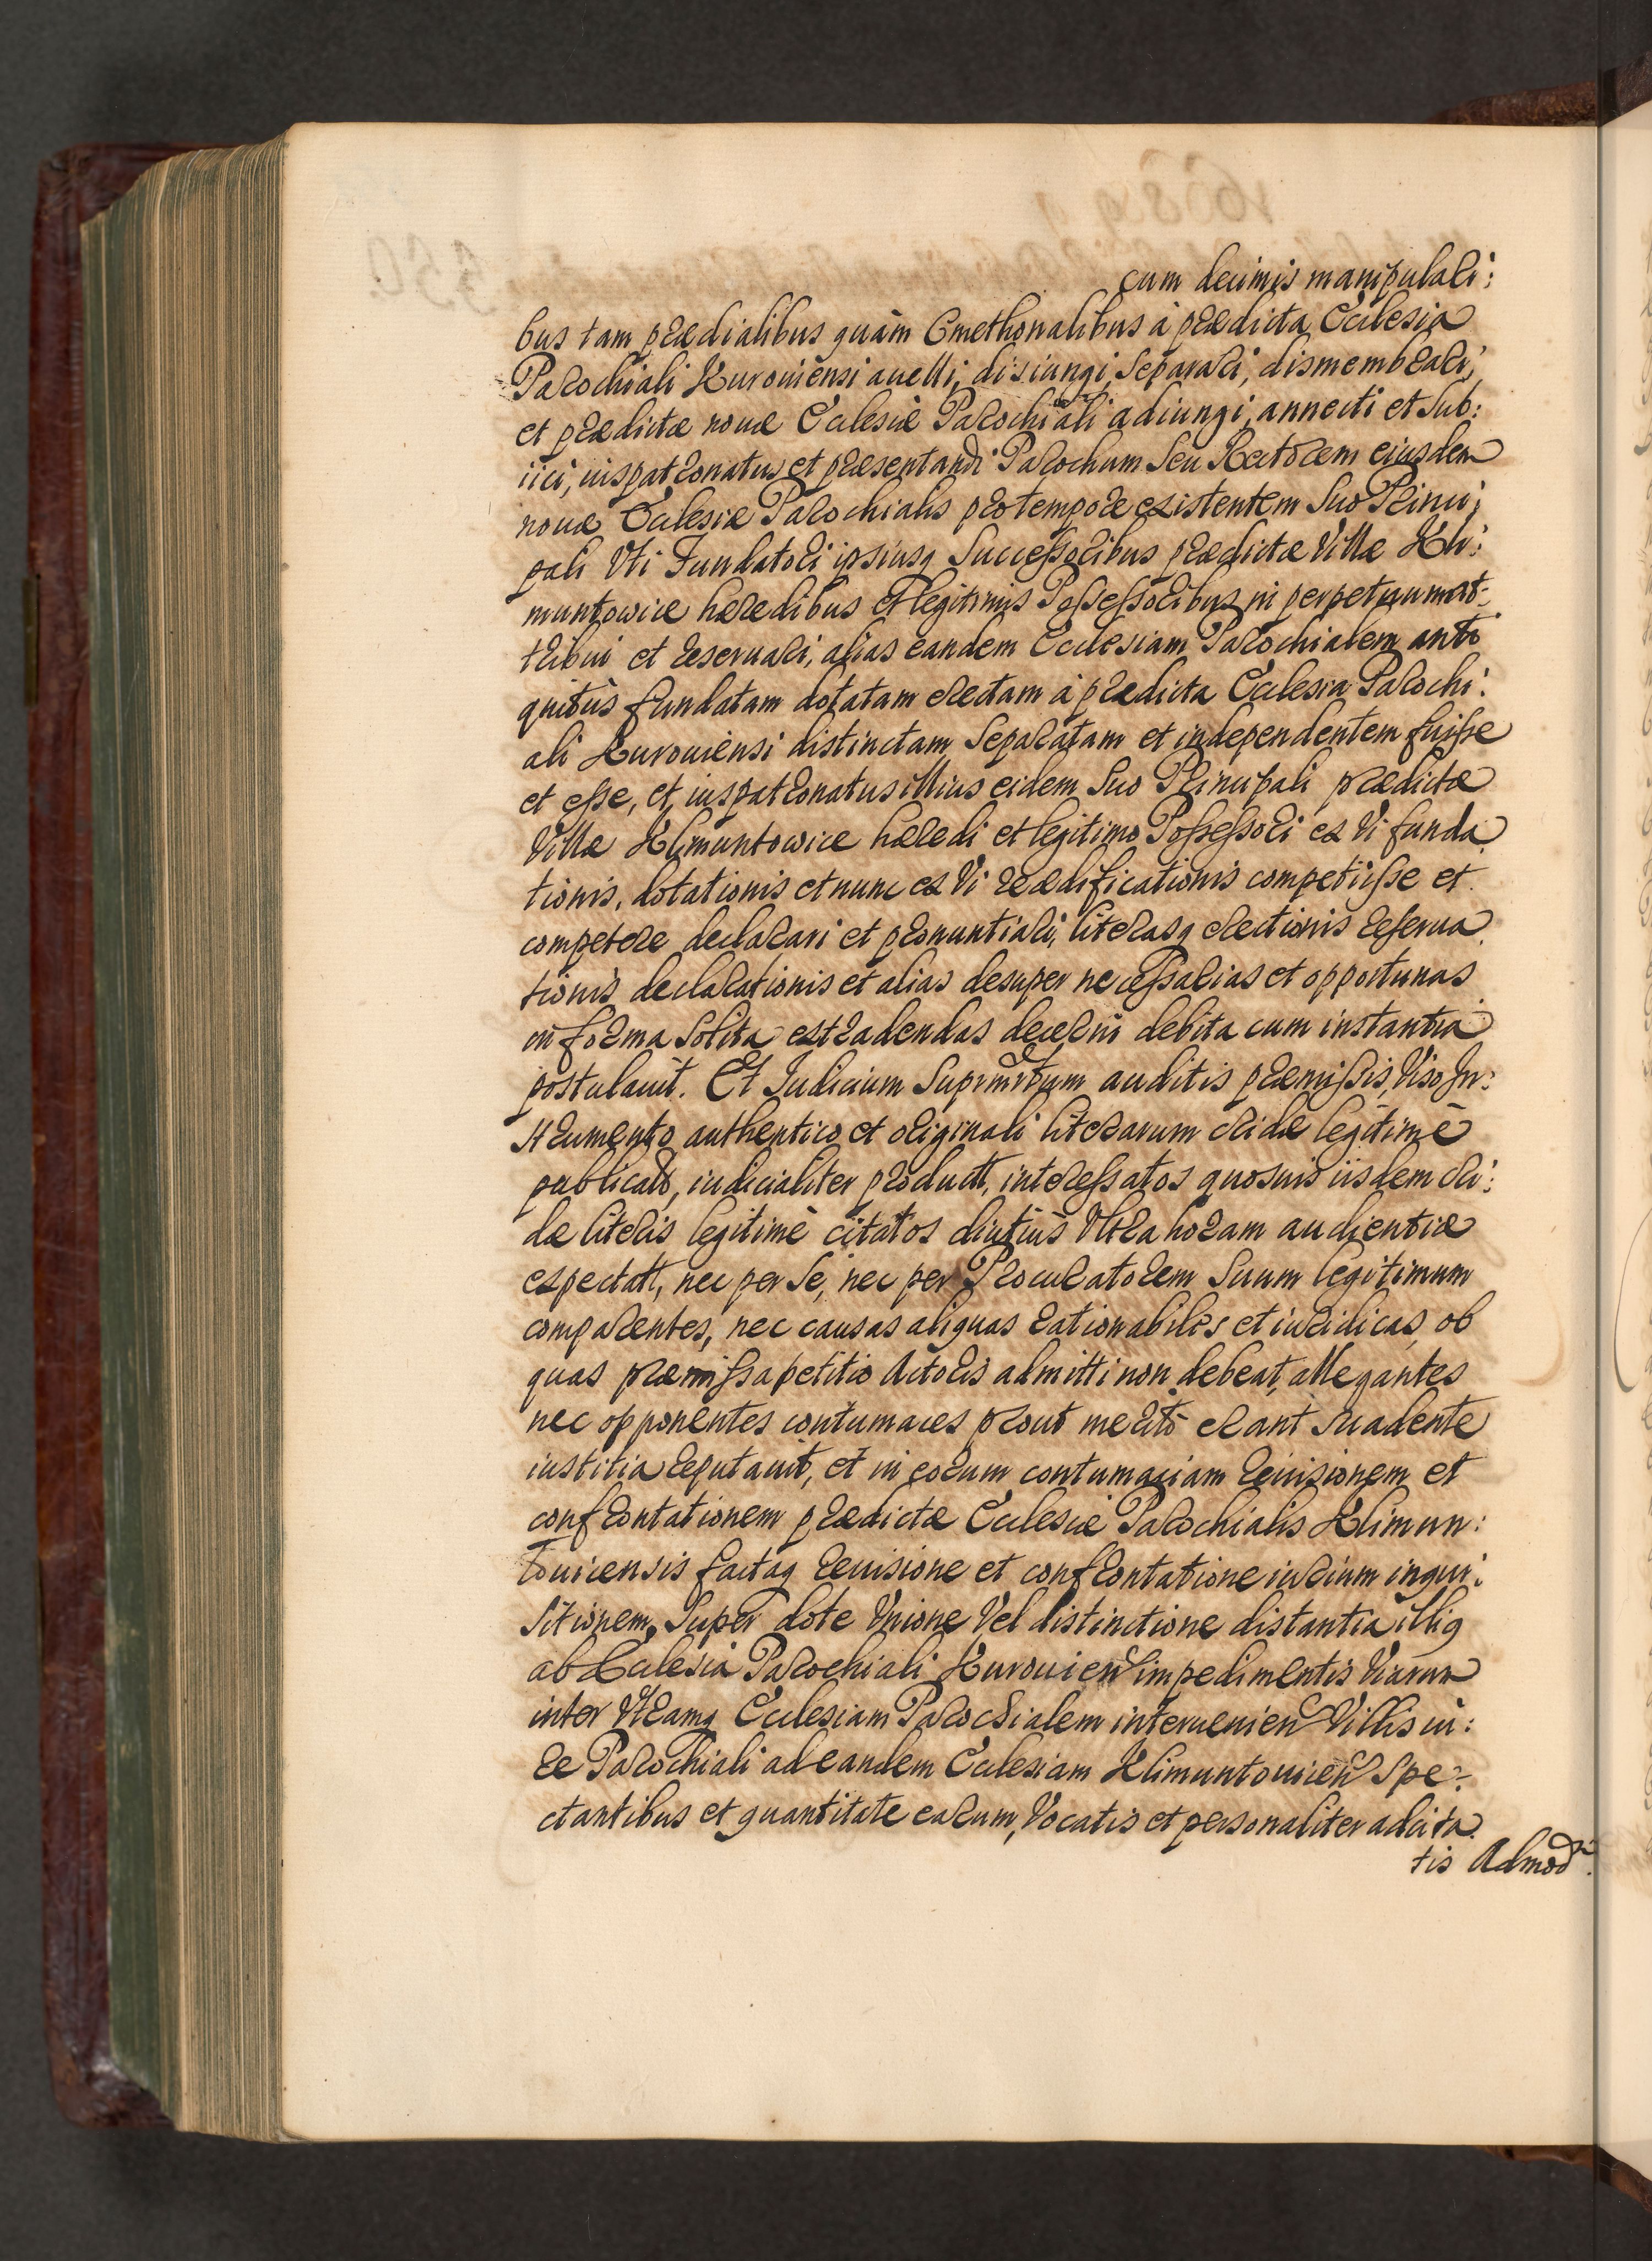 cum decimis manipulari:
bus tam prædialibus quàm Cmethonalibus à prædicta Ecclesia
Parochiali Kurouiensi auelli, disiungi, separari, dismembrari,
et prædictæ nouæ Ecclesiæ Parochiali adiungi, annecti et sub:
iici, iuspatronatus et præsentandi Parochum seu Rectorem eiusdem
nouæ Ecclesiæ Parochialis pro tempore existentem suo Princi:
pali Vti Fundatori ipsiusq Successoribus prædictæ Villæ Kli:
muntowice hæredibus et legitimis Possessoribus in perpetuum at:
tribui et reseruari, alias eandem Ecclesiam Parochialem anti
quitùs fundatam dotatam erectam à prædicta Ecclesia Parochi:
ali Kurouiensi distinctam separatam et independentem fuisse
et esse, et iuspatronatus illius eidem suo Principali prædictæ
Villæ Klimuntowice hæredi et legitimo Possessori ex Vi funda
tionis, dotationis et nunc ex Vi reædificationis competiisse et
competere declarari et pronuntiari, literasq erectionis reserua
tionis declarationis et alias desuper necessarias et opportunas
in forma solita extradendas decerni debita cum instantia
postulauit. Et Iudicium auditis præmissis, Viso In:
strumento authentico et originali literarum cridæ legitimè
publicato, iudicialiter product, interessatos quosuis iisdem cri:
dæ literis legitimè citatos diutiùs Vltra horam audientiæ
expectatt, nec per se, nec per Procuratorem suum legitimum
comparentes, nec causas aliquas rationabiles et iuridicas, ob
quas præmissa petitio Actoris admitti non debeat, allegantes
nec opponentes contumaces prout meritò erant suadente
iustitia reputauit, et in eorum contumaciam reuisionem et
confrontationem prædictæ Ecclesiæ Parochialis Klimun:
touicensis factaq reuisione et confrontatione iurium inqui:
sitionem, super dote Vnione Vel distinctione distantia illiq
ab Ecclesia Parochiali Kurouien impedimentis Viarum
inter Vtramq Ecclesiam Parochialem interuenien Villis iu:
re Parochiali ad eandem Ecclesiam Klimuntouicen spe:
ctantibus et quantitate earum, Vocatis et personaliter adcita
tis Admod